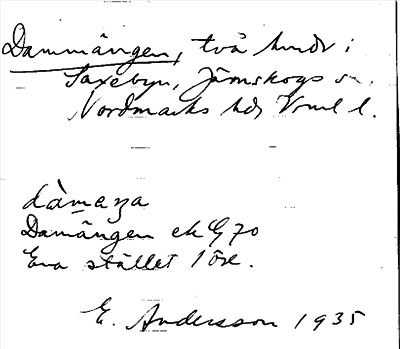 Dammängen, två hmdr i
Saxebyn, Järnskogs sn.
Nordmarks hd, Vrml l.
dàmaŋa
Damängen ek G 70
Ena stället 1 öre.
E. Andersson 1935